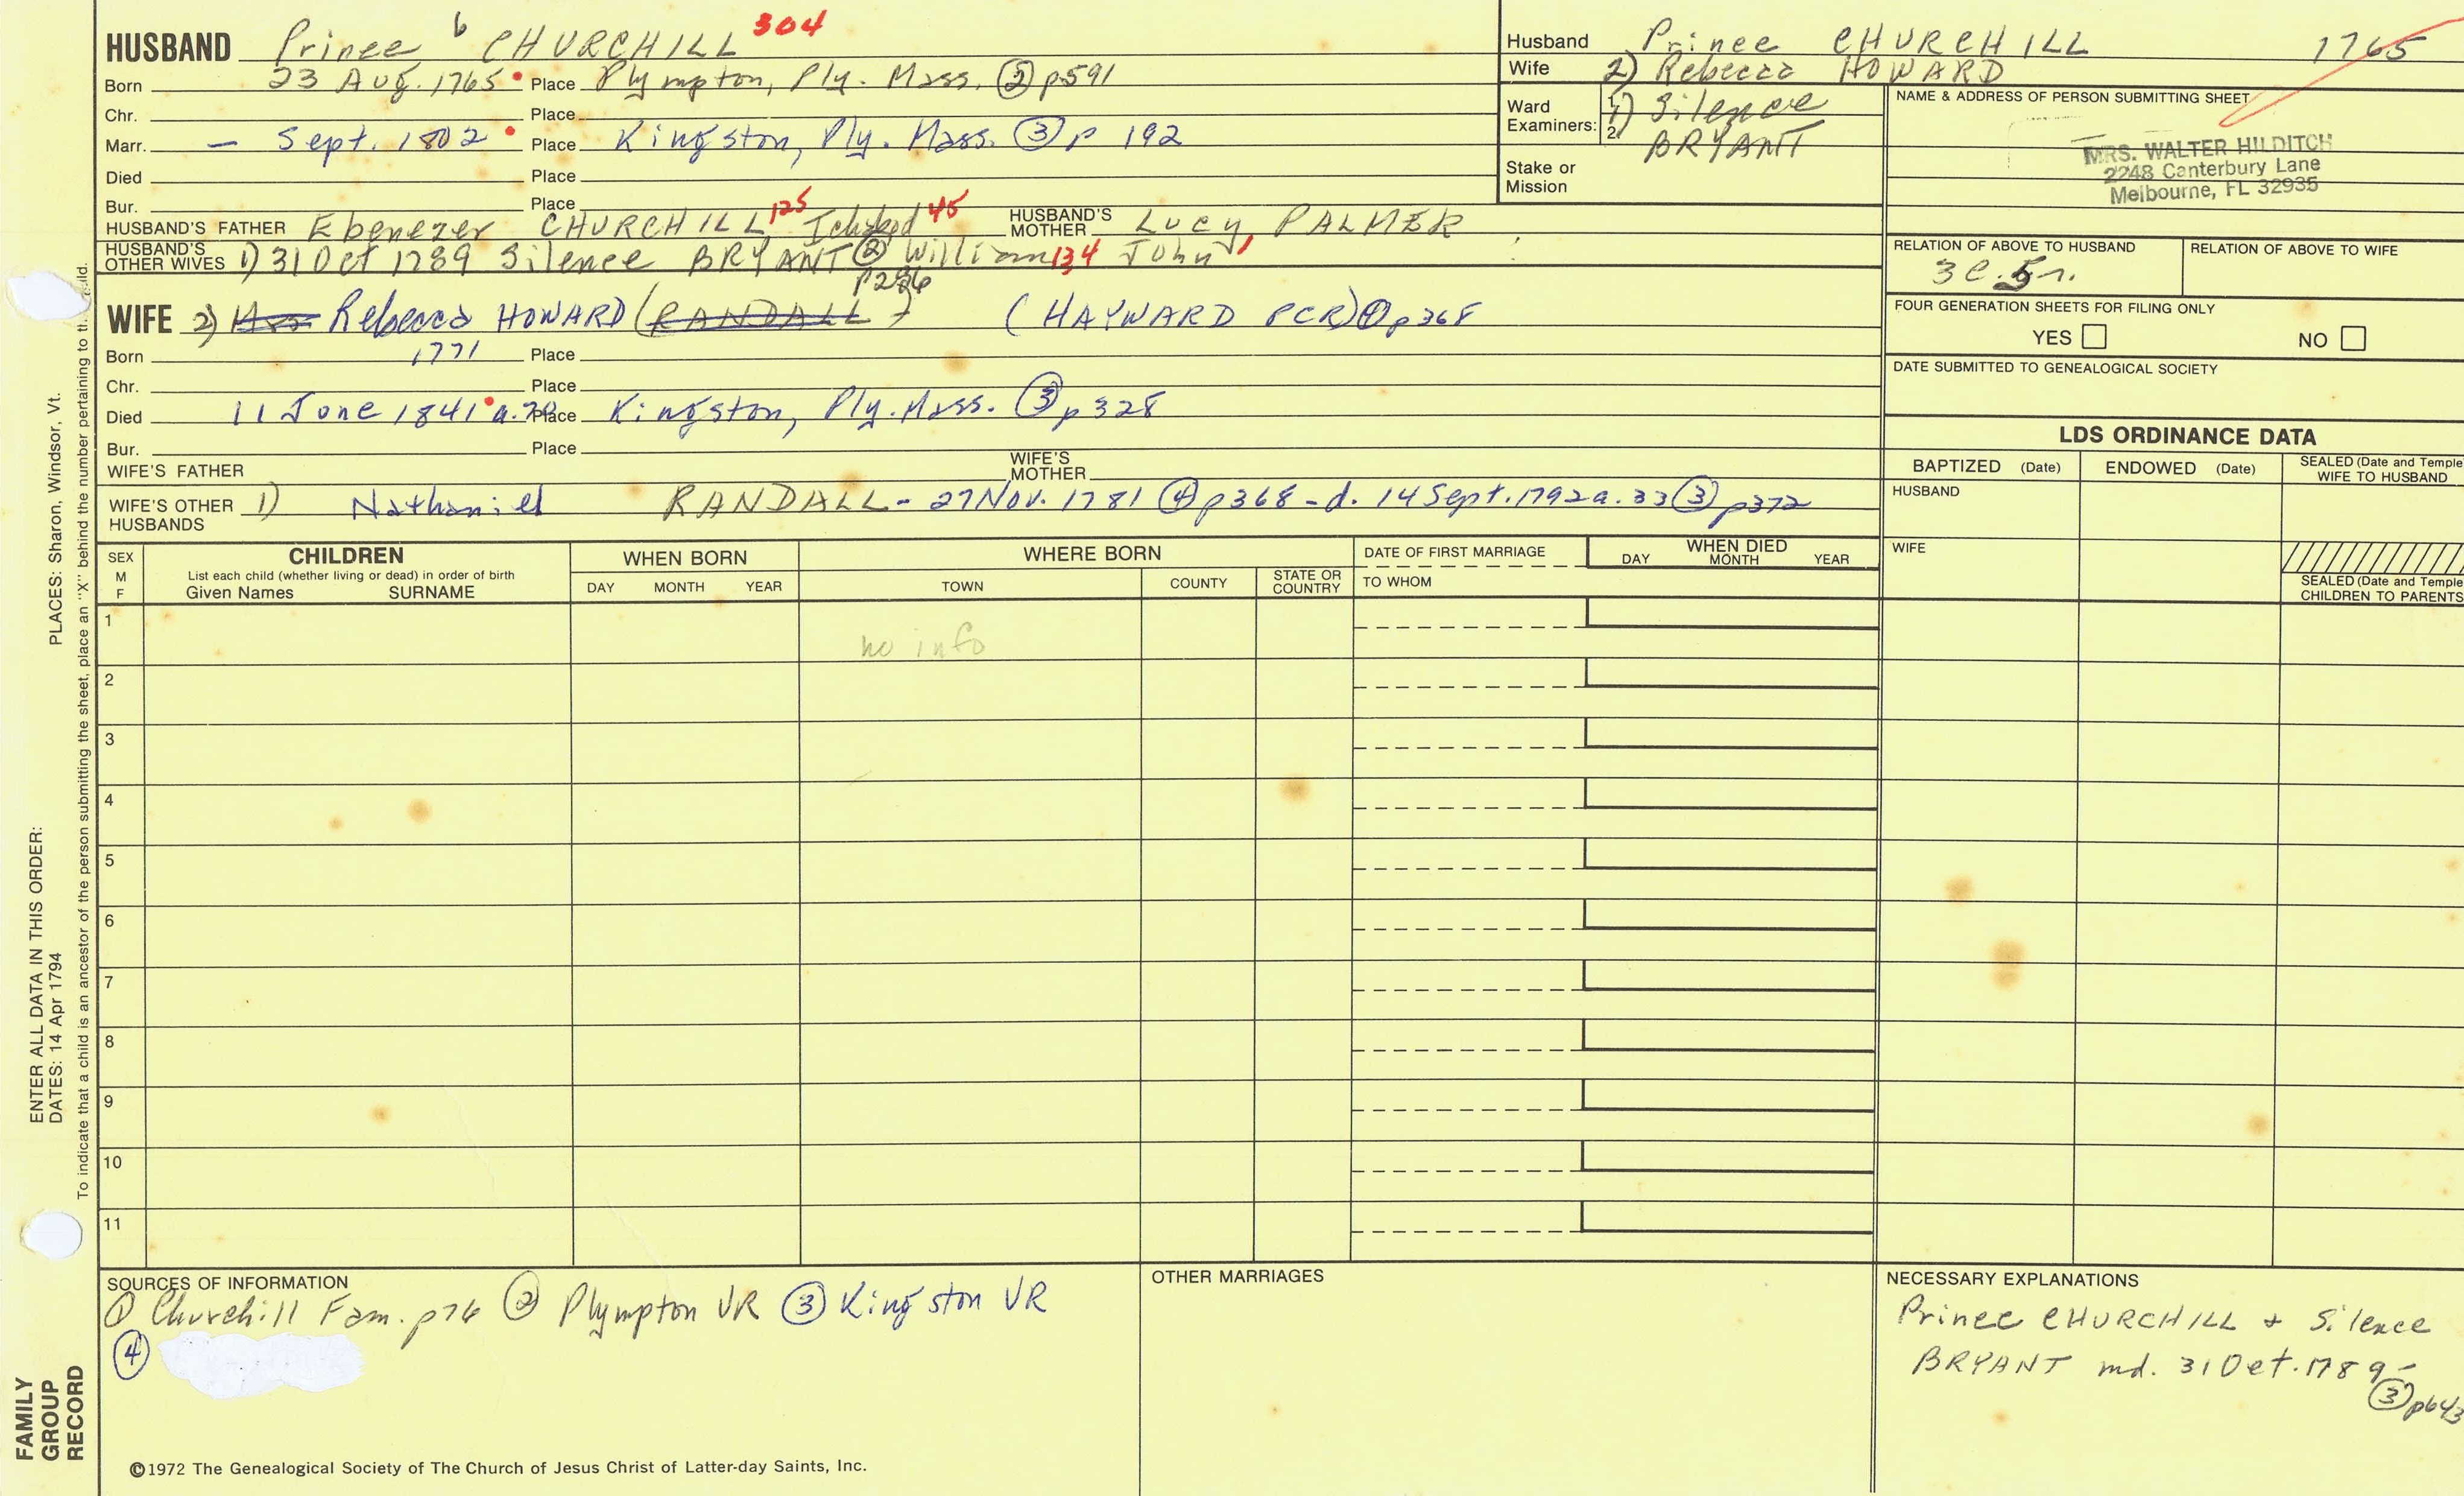 HUSBAND Prince 6 CHURCHILL 304
Born 23 Aug. 1765 Place Plympton, Ply. Mass. ⑤ p591
Chr. Place
Marr. — Sept. 1802 Place Kingston, Ply. Mass. ③ p 192
Died Place
Bur. Place
HUSBAND'S FATHER Ebenezer CHURCHILL 125 Ichabod 45 HUSBAND'S MOTHER Lucy PALMER
HUSBAND'S OTHER WIVES 1) 31 Oct 1789 Silence BRYANT ② William 134 John
Husband Prince CHURCHILL 1765
Wife 2) Rebecca HOWARD
Ward Examiners: 1. 2. 1) Silence BRYANT
Stake or Mission
NAME & ADDRESS OF PERSON SUBMITTING SHEET
MRS. WALTER HILDITCH
2248 Canterbury Lane
Melbourne, FL 32935
RELATION OF ABOVE TO HUSBAND RELATION OF ABOVE TO WIFE
3 C. 5 r.
FOUR GENERATION SHEETS FOR FILING ONLY
YES NO
DATE SUBMITTED TO GENEALOGICAL SOCIETY
WIFE 2) Rebecca HOWARD (RANDALL) (HAYWARD PCR) ④ p368
Born 1771 Place
Chr. Place
Died 11 June 1841 a. 70 Place Kingston, Ply. Mass. ③ p328
Bur. Place
WIFE'S FATHER WIFE'S MOTHER
WIFE'S OTHER HUSBANDS 1) Nathaniel RANDALL - 27 Nov. 1781 ④ p368 - d. 14 Sept. 1792 a. 33 ③ p372
LDS ORDINANCE DATA
BAPTIZED (Date) ENDOWED (Date) SEALED (Date and Temple) WIFE TO HUSBAND
HUSBAND
WIFE
SEALED (Date and Temple) CHILDREN TO PARENTS
SEX M F
CHILDREN
List each child (whether living or dead) in order of birth
Given Names SURNAME
WHEN BORN
DAY MONTH YEAR
WHERE BORN
TOWN COUNTY STATE OR COUNTRY
DATE OF FIRST MARRIAGE
TO WHOM
WHEN DIED
DAY MONTH YEAR
1
no info
2
3
4
5
6
7
8
9
10
11
SOURCES OF INFORMATION
① Churchill Fam. p76 ② Plympton VR ③ Kingston VR
④
OTHER MARRIAGES
NECESSARY EXPLANATIONS
Prince CHURCHILL + Silence
BRYANT md. 31 Oct. 1789 -
③ p643
©1972 The Genealogical Society of The Church of Jesus Christ of Latter-day Saints, Inc.
FAMILY GROUP RECORD
ENTER ALL DATA IN THIS ORDER:
DATES: 14 Apr 1794 PLACES: Sharon, Windsor, Vt.
To indicate that a child is an ancestor of the person submitting the sheet, place an "X" behind the number pertaining to